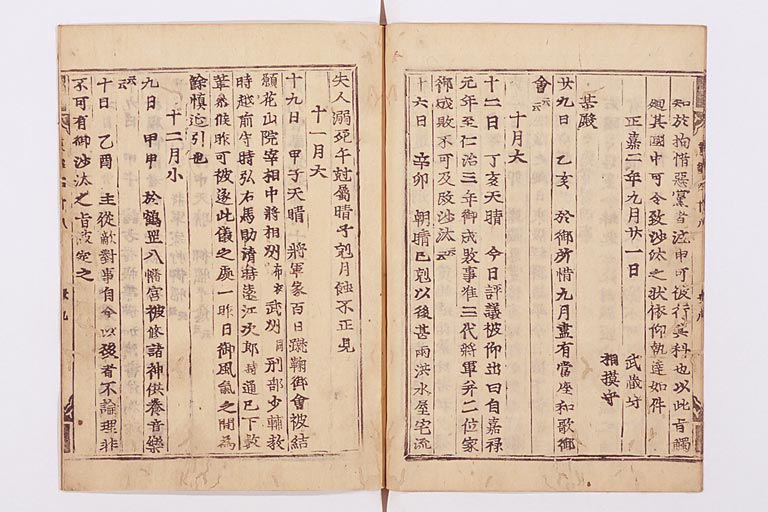 知於拘惜惡黨者注申可被行其科也以此旨觸
廻其國中可令致沙汰之狀依仰執達如件
正嘉二年九月廿一日
武藏守
相摸守
某殿
廿九日 乙亥 於御所惜九月盡有當座和歌御
會云云
十月大
十二日 丁亥天晴 今日評議被仰出曰自嘉祿
元年至仁治三年御成敗事准三代將軍并二位家
御成敗不可及改沙汰云云
十六日 辛卯 朝晴巳剋以後甚雨洪水屋宅流
失人溺死午尅屬晴子剋月蝕不正見
十一月大
十九日 甲子天晴 將軍家百日蹴鞠御會被結
願花山院宰相中將相州武州刑部少輔教
時越前守時弘右馬助清時遠江次郎時通已下數
輩參候昨可被遂此儀之處一昨日御風氣之間爲
餘慎延引也
十二月小
九日 甲申 於鶴罡八幡宮被修諸神供養音樂
云云
十日 乙酉 主從敵對事自今以後者不論理非
不可有御沙汰之旨被定之